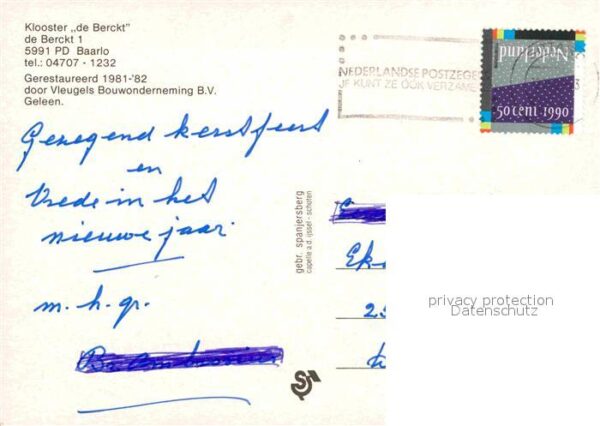 Klooster „de Berckt"
de Berckt 1
5991 PD Baarlo
tel.: 04707 - 1232
Gerestaureerd 1981-'82
door Vleugels Bouwonderneming B.V.
Geleen.
NEDERLANDSE POSTZEGE
JE KUNT ZE OOK VERZAME
Nederland
50 cent 1990
Gezegend kerstfeest
en
Vrede in het
nieuwe jaar.
m. h. gr.
gebr. spanjersberg
capelle a.d. ijssel - schoten
Ek
privacy protection
Datenschutz